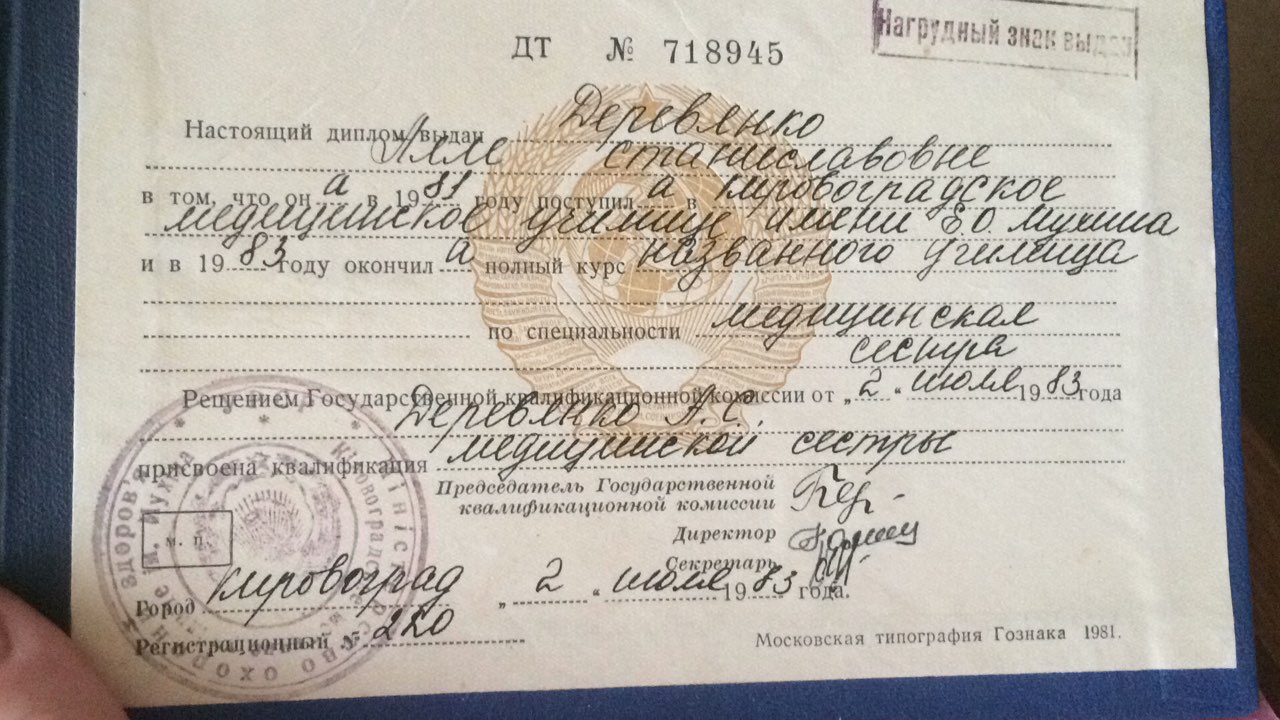 ДТ № 718945
Нагрудный знак выдан
Настоящий диплом выдан Деревянко
Алле Станиславовне
в том, что он а в 1981 году поступил а в Кировоградское
медицинское училище имени Е.О. Мухина
и в 1983 году окончил а полный курс названного училища
по специальности медицинская
сестра
Решением Государственной квалификационной комиссии от „2“ июля 1983 года
Деревянко А.С.
присвоена квалификация медицинской сестры
Председатель Государственной
квалификационной комиссии
Директор
Секретарь
м. п.
Город Кировоград „2“ июля 1983 года.
Регистрационный № 220
Московская типография Гознака 1981.